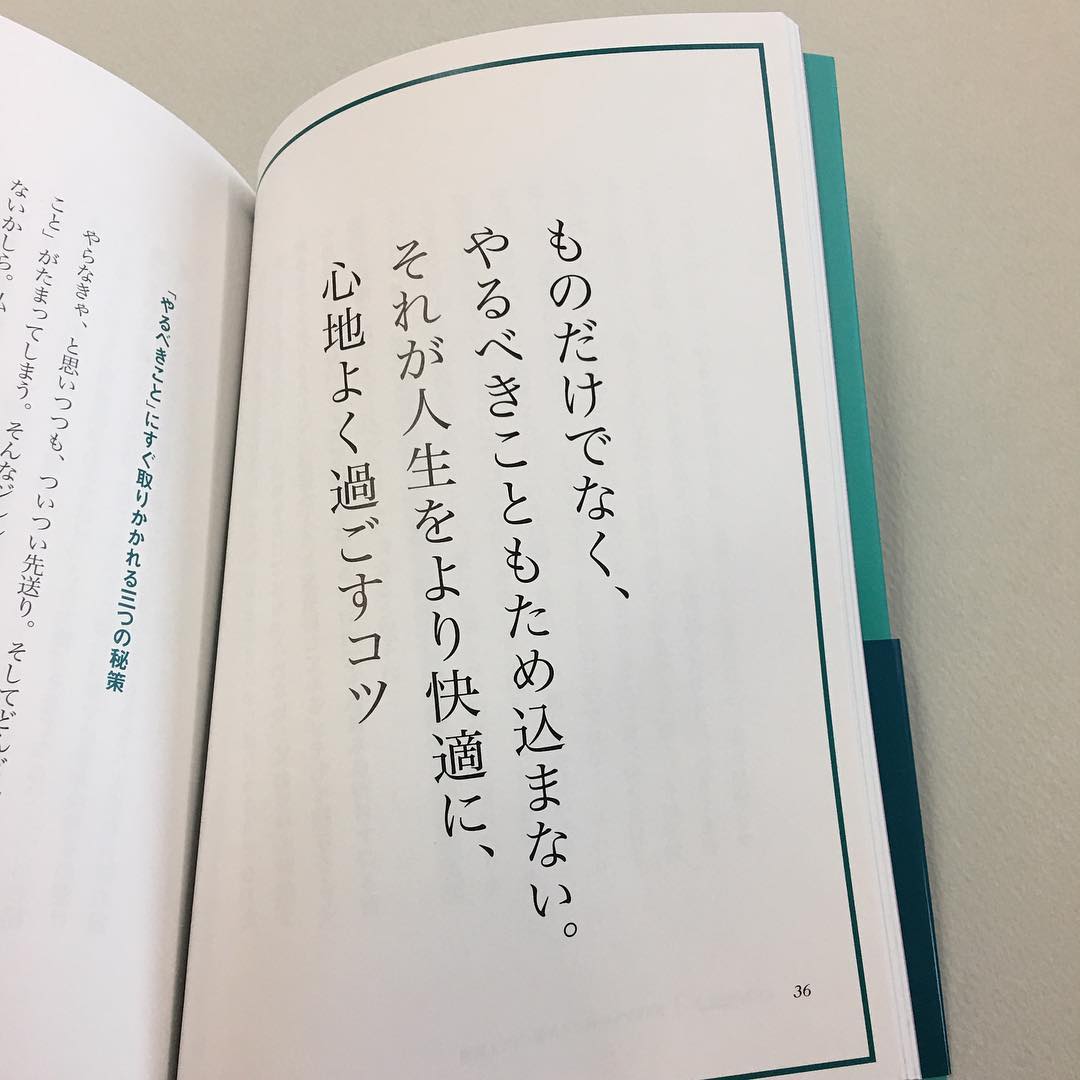 ものだけでなく、
やるべきこともため込まない。
それが人生をより快適に、
心地よく過ごすコツ
36
「やるべきこと」にすぐ取りかかれる三つの秘策
やらなきゃ、と思いつつも、ついつい先送り。そしてどんど
こと」がたまってしまう。そんな
ないかしら。